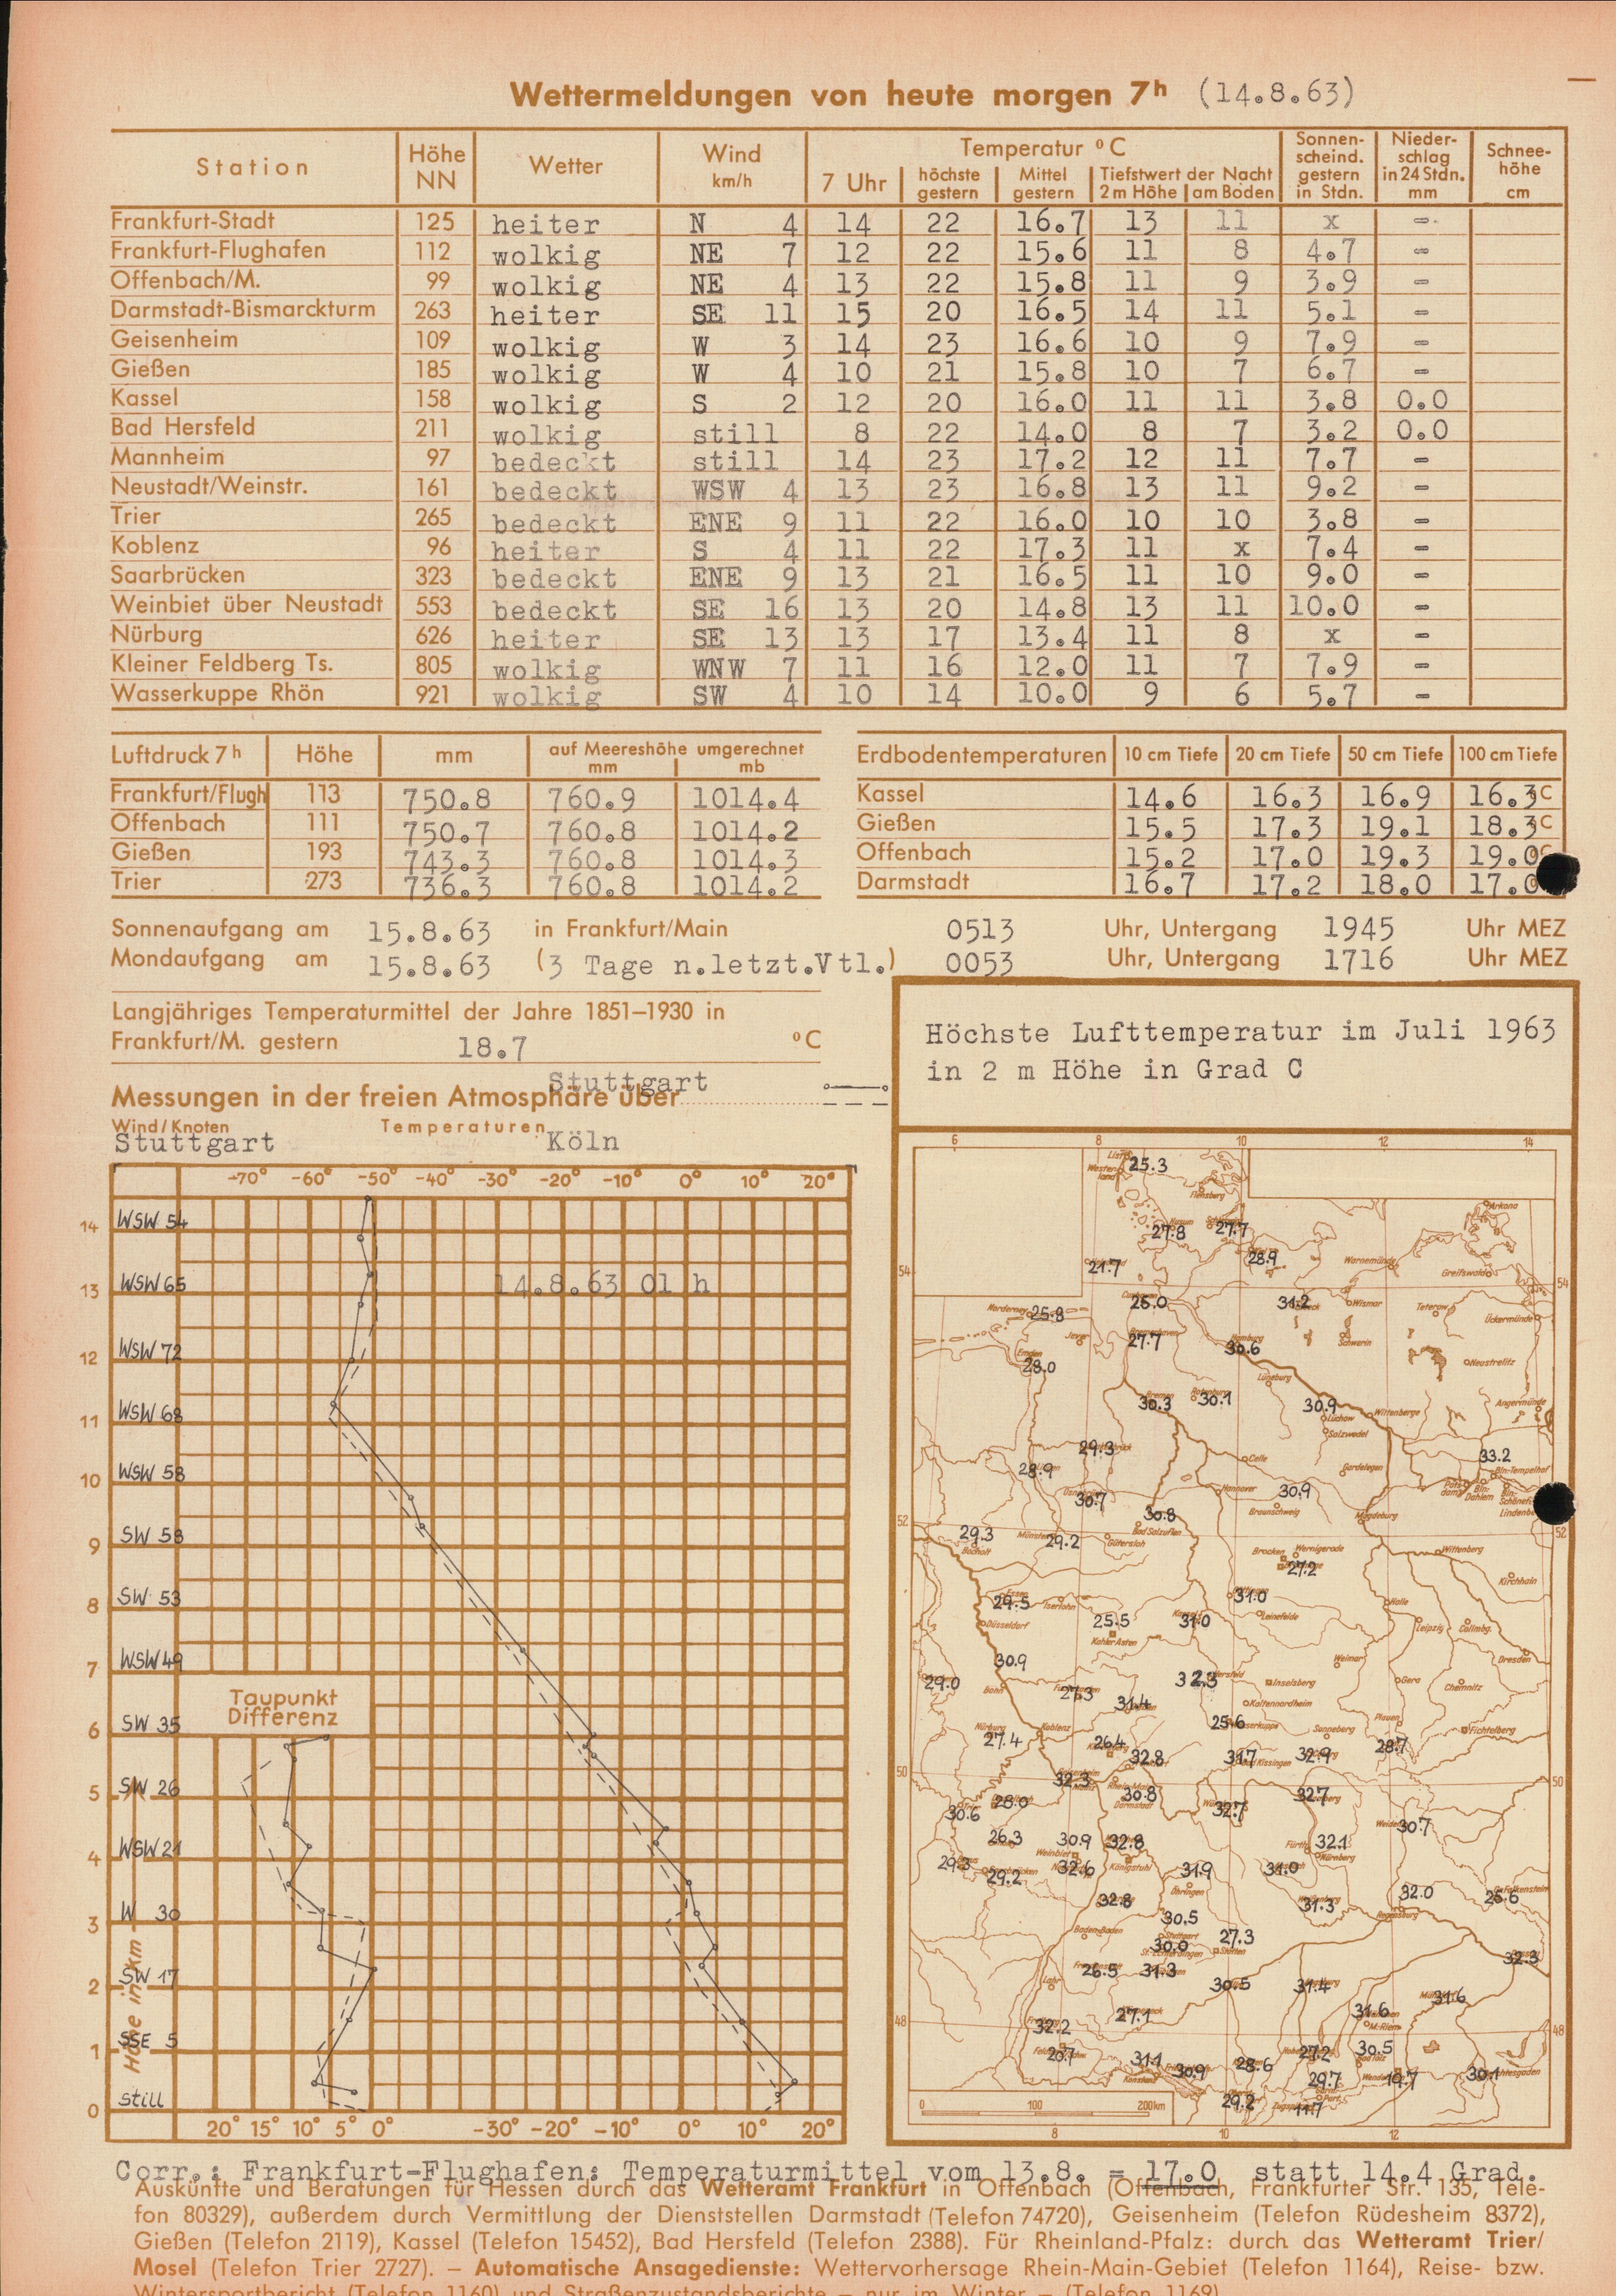 Wettermeldungen von heute morgen 7h (14.8.63)
Station Höhe NN Wetter Wind km/h Temperatur °C Sonnen-scheind. gestern in Stdn. Nieder-schlag in 24 Stdn. mm Schnee-höhe cm
7 Uhr höchste gestern Mittel gestern Tiefstwert der Nacht 2 m Höhe am Boden
Frankfurt-Stadt 125 heiter N 4 14 22 16.7 13 11 x -
Frankfurt-Flughafen 112 wolkig NE 7 12 22 15.6 11 8 4.7 -
Offenbach/M. 99 wolkig NE 4 13 22 15.8 11 9 3.9 -
Darmstadt-Bismarckturm 263 heiter SE 11 15 20 16.5 14 11 5.1 -
Geisenheim 109 wolkig W 3 14 23 16.6 10 9 7.9 -
Gießen 185 wolkig W 4 10 21 15.8 10 7 6.7 -
Kassel 158 wolkig S 2 12 20 16.0 11 11 3.8 0.0
Bad Hersfeld 211 wolkig still 8 22 14.0 8 7 3.2 0.0
Mannheim 97 bedeckt still 14 23 17.2 12 11 7.7 -
Neustadt/Weinstr. 161 bedeckt WSW 4 13 23 16.8 13 11 9.2 -
Trier 265 bedeckt ENE 9 11 22 16.0 10 10 3.8 -
Koblenz 96 heiter S 4 11 22 17.3 11 x 7.4 -
Saarbrücken 323 bedeckt ENE 9 13 21 16.5 11 10 9.0 -
Weinbiet über Neustadt 553 bedeckt SE 16 13 20 14.8 13 11 10.0 -
Nürburg 626 heiter SE 13 13 17 13.4 11 8 x -
Kleiner Feldberg Ts. 805 wolkig WNW 7 11 16 12.0 11 7 7.9 -
Wasserkuppe Rhön 921 wolkig SW 4 10 14 10.0 9 6 5.7 -
Luftdruck 7h Höhe mm auf Meereshöhe umgerechnet mm mb
Frankfurt/Flugh 113 750.8 760.9 1014.4
Offenbach 111 750.7 760.8 1014.2
Gießen 193 743.3 760.8 1014.3
Trier 273 736.3 760.8 1014.2
Erdbodentemperaturen 10 cm Tiefe 20 cm Tiefe 50 cm Tiefe 100 cm Tiefe
Kassel 14.6 16.3 16.9 16.3 °C
Gießen 15.5 17.3 19.1 18.3 °C
Offenbach 15.2 17.0 19.3 19.0 °C
Darmstadt 16.7 17.2 18.0 17.0
Sonnenaufgang am 15.8.63 in Frankfurt/Main 0513 Uhr, Untergang 1945 Uhr MEZ
Mondaufgang am 15.8.63 (3 Tage n.letzt.Vtl.) 0053 Uhr, Untergang 1716 Uhr MEZ
Langjähriges Temperaturmittel der Jahre 1851–1930 in
Frankfurt/M. gestern 18.7 °C
Stuttgart
Messungen in der freien Atmosphäre über
Wind/Knoten Temperaturen
Stuttgart Köln
-70° -60° -50° -40° -30° -20° -10° 0° 10° 20°
14 WSW 54
14.8.63 01 h
13 WSW 65
12 WSW 72
11 WSW 68
10 WSW 58
9 SW 58
8 SW 53
7 WSW 49
Taupunkt
Differenz
6 SW 35
5 SW 26
4 WSW 21
3 W 30
2 SW 17
1 SSE 5
0 still
Höhe in km
20° 15° 10° 5° 0° -30° -20° -10° 0° 10° 20°
Höchste Lufttemperatur im Juli 1963
in 2 m Höhe in Grad C
6 8 10 12 14
25.3
Flensburg
Arkona
27.8 27.7
28.9
Warnemünde
54 21.7 Greifswald 54
Norderney 25.8 26.0 31.2 Wismar Teterow Ückermünde
Jever 27.7 30.6 Schwerin
Emden 28.0 Neustrelitz
Lüneburg
30.3 30.1 30.9 Lüchow Wittenberge Angermünde
Salzwedel
29.3 33.2
28.9 Celle Gardelegen Bln-Tempelhof
30.7 Hannover 30.9
30.8 Braunschweig Magdeburg
52 29.3 Münster 29.2 Bad Salzuflen 52
Bocholt Gütersloh Brocken Wernigerode Wittenberg
27.2
Kirchhain
29.5 Iserlohn 31.0 Halle
Düsseldorf 25.5 31.0 Leinefelde Leipzig Collmbg.
Kahler Asten
30.9 Weimar Dresden
29.0 Bonn 27.3 32.3 Inselsberg Gera Chemnitz
31.4 Kaltennordheim
25.6 Sonneberg Plauen Fichtelberg
Nürburg 27.4 Koblenz 26.4 32.8 31.7 Bad Kissingen 32.9 28.7
50 32.3 50
30.6 28.0 30.8 32.7 32.7
Darmstadt
26.3 30.9 32.8 Fürth 32.1 Weiden 30.7
Weinbiet Nürnberg
29.3 29.2 32.6 Königstuhl 31.9 31.0
Öhringen 32.0 25.6
32.8 31.3 Regensburg
Baden-Baden 30.5
Stuttgart 27.3
30.0 Stötten 32.3
Lahr 26.5 31.3 30.5 31.4 31.6
48 32.2 27.1 31.6 M-Riem 48
20.7 31.1 30.9 28.6 27.2 30.5
Konstanz 29.7 19.7 30.1
29.2 11.7
0 100 200 km
8 10 12
Corr.: Frankfurt-Flughafen: Temperaturmittel vom 13.8. = 17.0 statt 14.4 Grad.
Auskünfte und Beratungen für Hessen durch das Wetteramt Frankfurt in Offenbach (Offenbach, Frankfurter Str. 135, Tele-
fon 80329), außerdem durch Vermittlung der Dienststellen Darmstadt (Telefon 74720), Geisenheim (Telefon Rüdesheim 8372),
Gießen (Telefon 2119), Kassel (Telefon 15452), Bad Hersfeld (Telefon 2388). Für Rheinland-Pfalz: durch das Wetteramt Trier/
Mosel (Telefon Trier 2727). – Automatische Ansagedienste: Wettervorhersage Rhein-Main-Gebiet (Telefon 1164), Reise- bzw.
Wintersportbericht (Telefon 1160) und Straßenzustandsberichte – nur im Winter – (Telefon 1169)